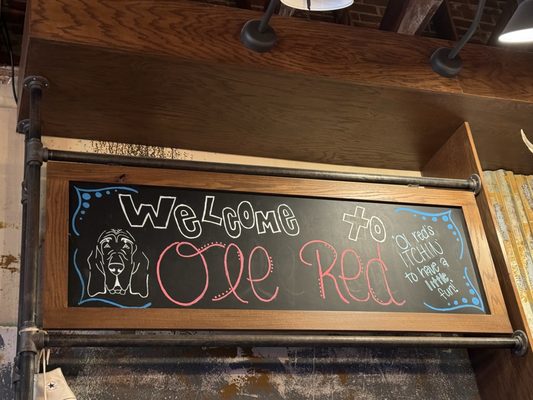 Welcome to
Ole Red
Ol' Red's
ITCHIN'
to HAVE a
little
fun!